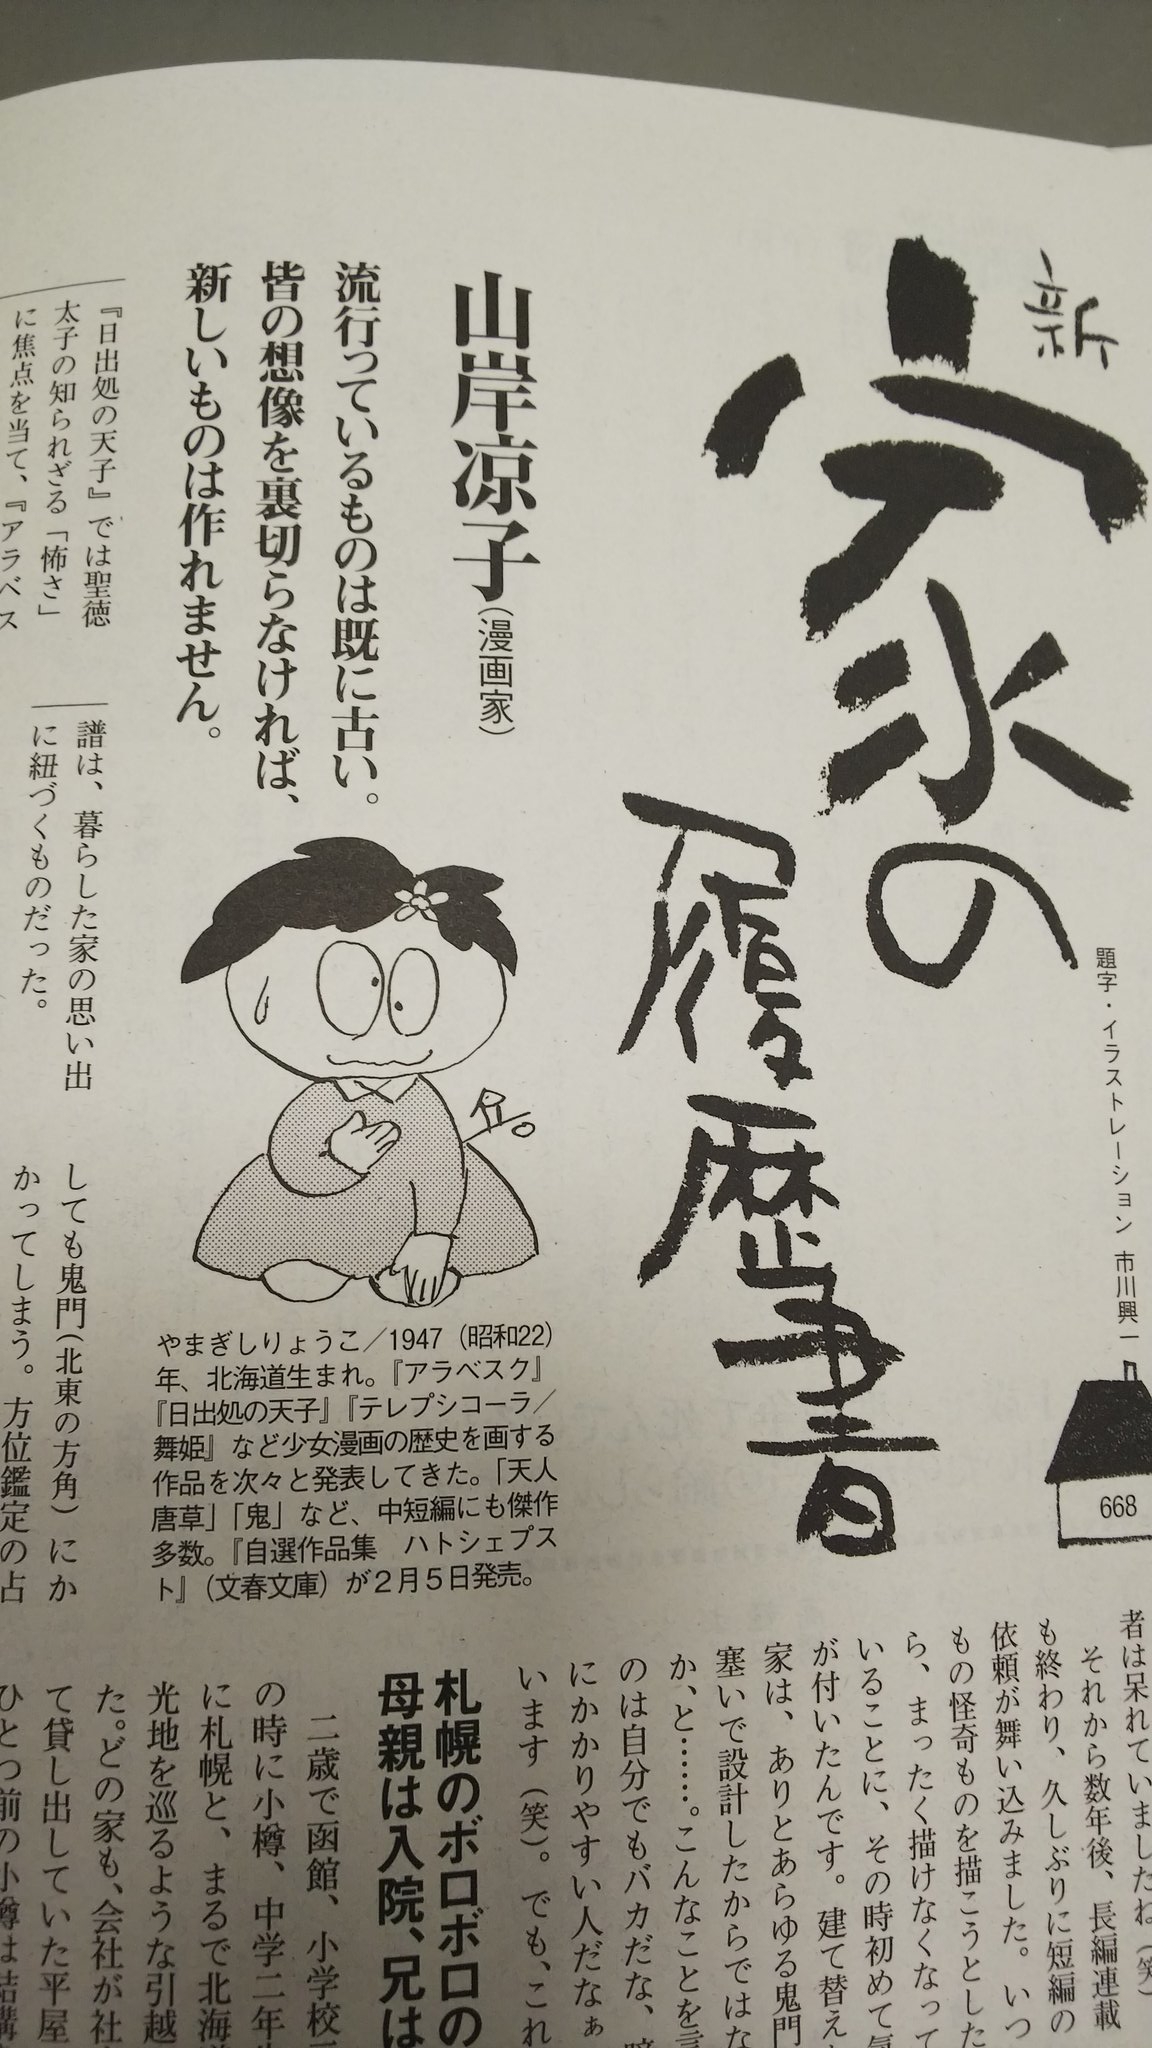 新
家の
履歴書
題字・イラストレーション 市川興一
668
山岸凉子(漫画家)
流行っているものは既に古い。
皆の想像を裏切らなければ、
新しいものは作れません。
やまぎしりょうこ／1947（昭和22）
年、北海道生まれ。『アラベスク』
『日出処の天子』『テレプシコーラ／
舞姫』など少女漫画の歴史を画する
作品を次々と発表してきた。「天人
唐草」「鬼」など、中短編にも傑作
多数。『自選作品集　ハトシェプス
ト』（文春文庫）が２月５日発売。
『日出処の天子』では聖徳
太子の知られざる「怖さ」
に焦点を当て、『アラベス
譜は、暮らした家の思い出
に紐づくものだった。
しても鬼門(北東の方角)にか
かってしまう。方位鑑定の占
者は呆れていましたね(笑)
それから数年後、長編連載
も終わり、久しぶりに短編の
依頼が舞い込みました。いつ
もの怪奇ものを描こうとした
ら、まったく描けなくなって
いることに、その時初めて気
が付いたんです。建て替え
家は、ありとあらゆる鬼門
塞いで設計したからではな
か、と……。こんなことを言
のは自分でもバカだな、暗
にかかりやすい人だなぁ
います(笑)。でも、これ
札幌のボロボロの
母親は入院、兄は
二歳で函館、小学校
の時に小樽、中学二年
に札幌と、まるで北海道
光地を巡るような引越
た。どの家も、会社が社
て貸し出していた平屋
ひとつ前の小樽は結構